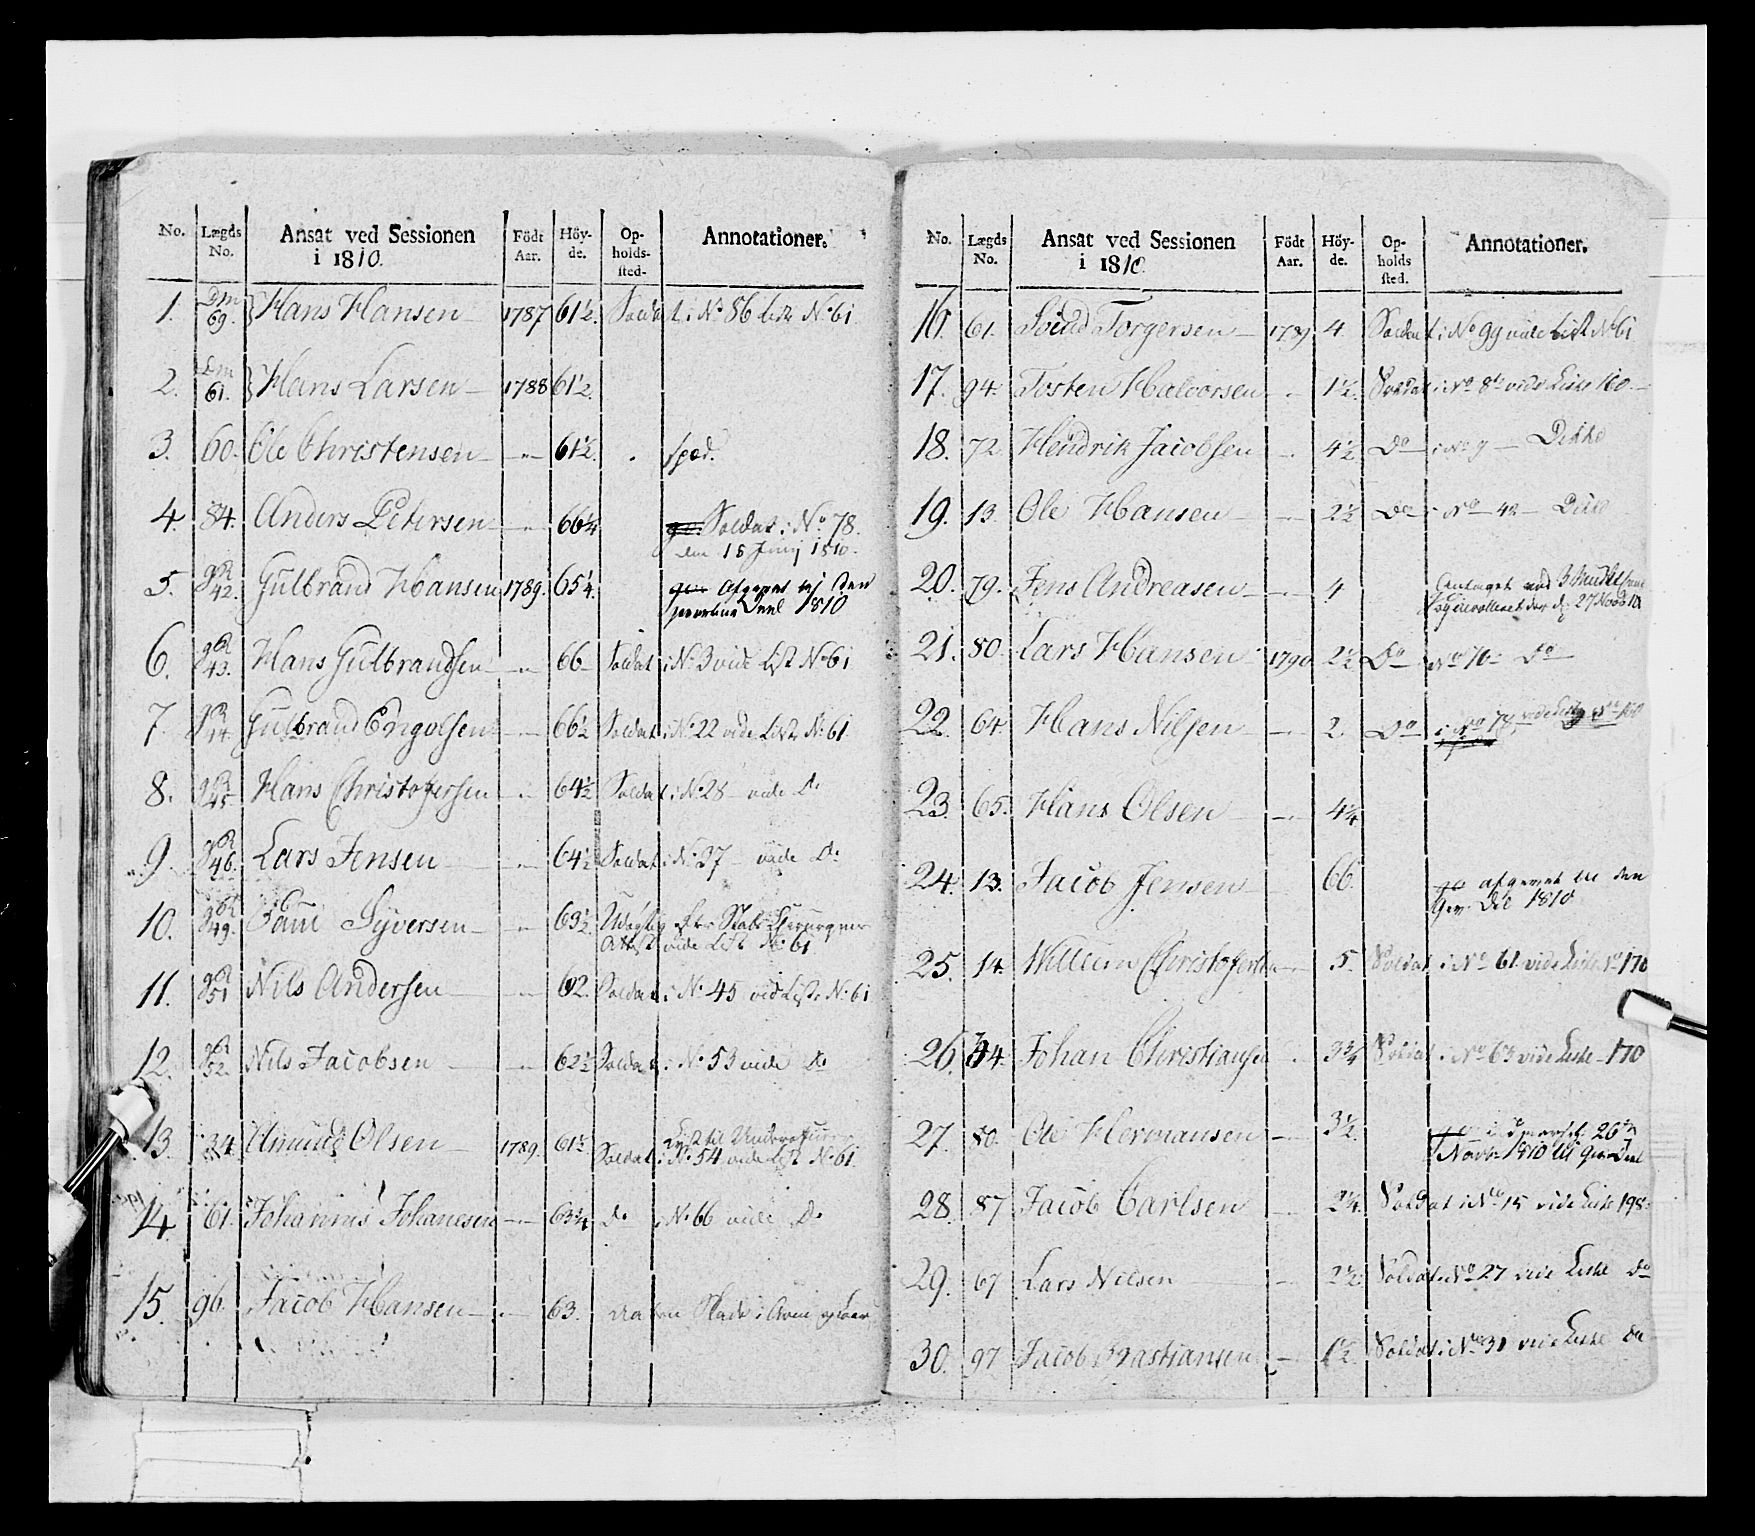 No. Lægds No. Ansat ved Sessionen i 1810. Födt Aar. Höy-de. Op-holds-sted. Annotationer.
1. Dm 69. Hans Hansen 1787 61½. Soldat i No 86 liste No 61
2. Dm 61. Hans Larsen 1788 61½.
3. 60. Ole Christensen — 61½. sped.
4. 84. Anders Petersen — 66¼ Soldat i No 78.
den 15 Junij 1810.
5. 42. Gulbrand Hansen 1789. 65¼. Afgaaet til den
Deel 1810
6. 43. Hans Gulbrandsen — 66 Soldat i No 3 vide List No 61
7. 44. Gulbrand Engolsen — 66½ Soldat i No 22 vide List No 61
8. 45. Hans Christofersen — 64½ Soldat i No 28 vide Do
9. 46. Lars Jensen — 64½ Soldat i No 37 vide Do
10. 49. Paul Syversen — 63½. Udygtig efter Stabs Chirurgens
Attest vide List No 61
11. 51 Nils Andersen — 62. Soldat i No 45 vid Liste No 61
12. 52. Nils Jacobsen — 62½ Soldat i No 53 vide Do
13. 34. Amund Olsen 1789. 61½ Lyst til
Soldat i No 54 vide List No 61
14. 61. Johannes Johanesen — 63¼ do i No 66 vide Do
15. 96. Jacob Hansen — 63. Skade i
No. Lægds No. Ansat ved Sessionen i 1810. Födt Aar. Höy-de. Op-holds sted. Annotationer.
16. 61. Svend Torgersen 1789 4 Soldat i No 99 vide List No 61
17. 94. Tosten Halvorsen — 1½. Soldat i No 86 vide Liste 160
18. 72 Hendrik Jacobsen — 4½ Do i No 9 — Ditto
19. 13. Ole Hansen — 2½ Do i No 42 — Ditto
20. 79. Jens Andreasen — 4 Antaget ved
27 Novb 10
21. 80. Lars Hansen 1790 2½ Do No 76 Do
22. 64. Hans Nilsen — 2. Do i No 78 vide Liste No 160
23. 65. Hans Olsen — 4¼
24. 13. Jacob Jensen 66. afgaaet til den
Gev Del 1810
25. 14. Willum Christofersen — 5. Soldat i No 61 vide Liste No 170
26. 34. Johan Christiansen — 3¾ Soldat i No 63 vide Liste 170
27. 80. Ole Hermansen — 3½. 26de
Novbr 1810 til Gev Deel
28. 87 Jacob Carlsen — 2¼. Soldat i No 15 vide Liste 198
29. 67 Lars Nilsen — 2½ Soldat i No 27 vide Liste Do
30. 97 Jacob Bastiansen — 1½. Soldat i No 31 vide Liste Do